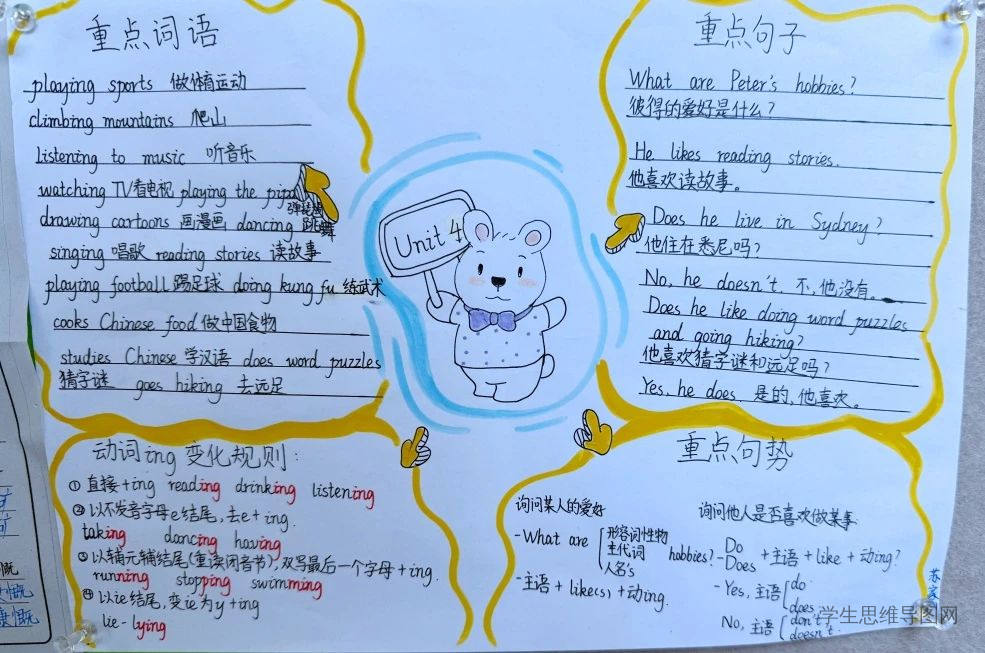 重点词语
playing sports 做体育运动
climbing mountains 爬山
listening to music 听音乐
watching TV看电视 playing the pipa
弹琵琶
drawing cartoons 画漫画 dancing 跳舞
singing 唱歌 reading stories 读故事
playing football 踢足球 doing kung fu 练武术
cooks Chinese food 做中国食物
studies Chinese 学汉语 does word puzzles
猜字谜 goes hiking 去远足
Unit 4
重点句子
What are Peter's hobbies?
彼得的爱好是什么?
He likes reading stories.
他喜欢读故事。
Does he live in Sydney?
他住在悉尼吗?
No, he doesn't. 不,他没有。
Does he like doing word puzzles
and going hiking?
他喜欢猜字谜和远足吗?
Yes, he does. 是的,他喜欢。
动词ing 变化规则:
① 直接+ing reading drinking listening
② 以不发音字母e结尾,去e+ing.
taking dancing having
③ 以辅元辅结尾(重读闭音节),双写最后一个字母+ing.
running stopping swimming
④ 以ie结尾,变ie为y+ing
lie-lying
重点句势
询问某人的爱好
-What are
形容词性物
主代词
人名's
hobbies?
-主语+like(s)+动ing.
询问他人是否喜欢做某事
-Do
-Does
+主语+like+动ing?
-Yes, 主语
do.
does.
No, 主语
don't.
doesn't.
学生思维导图网
慨
慷慨